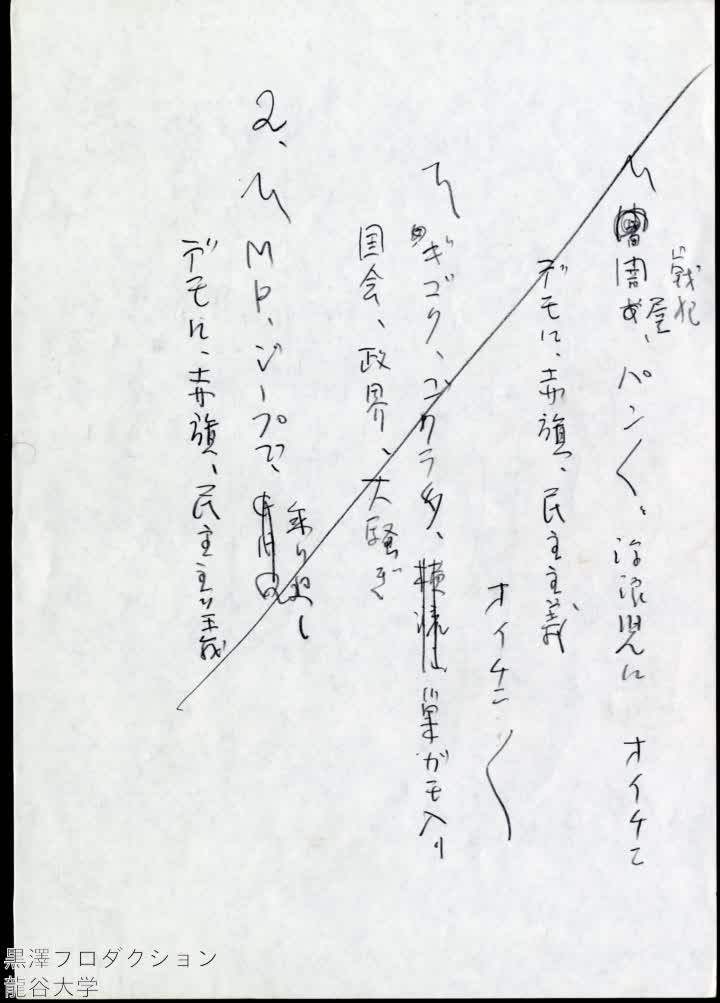 戦犯
闇屋、パン〱、浮浪児に オイチニ
デモに、赤旗、民主主義
オイチニ 〱
ギゴク、ゴクラ多、巣がも入り
国会、政界、大騒ぎ
2、
MP、ジープで、乗り廻し
デモに、赤旗、民主主義
黒澤プロダクション
龍谷大学